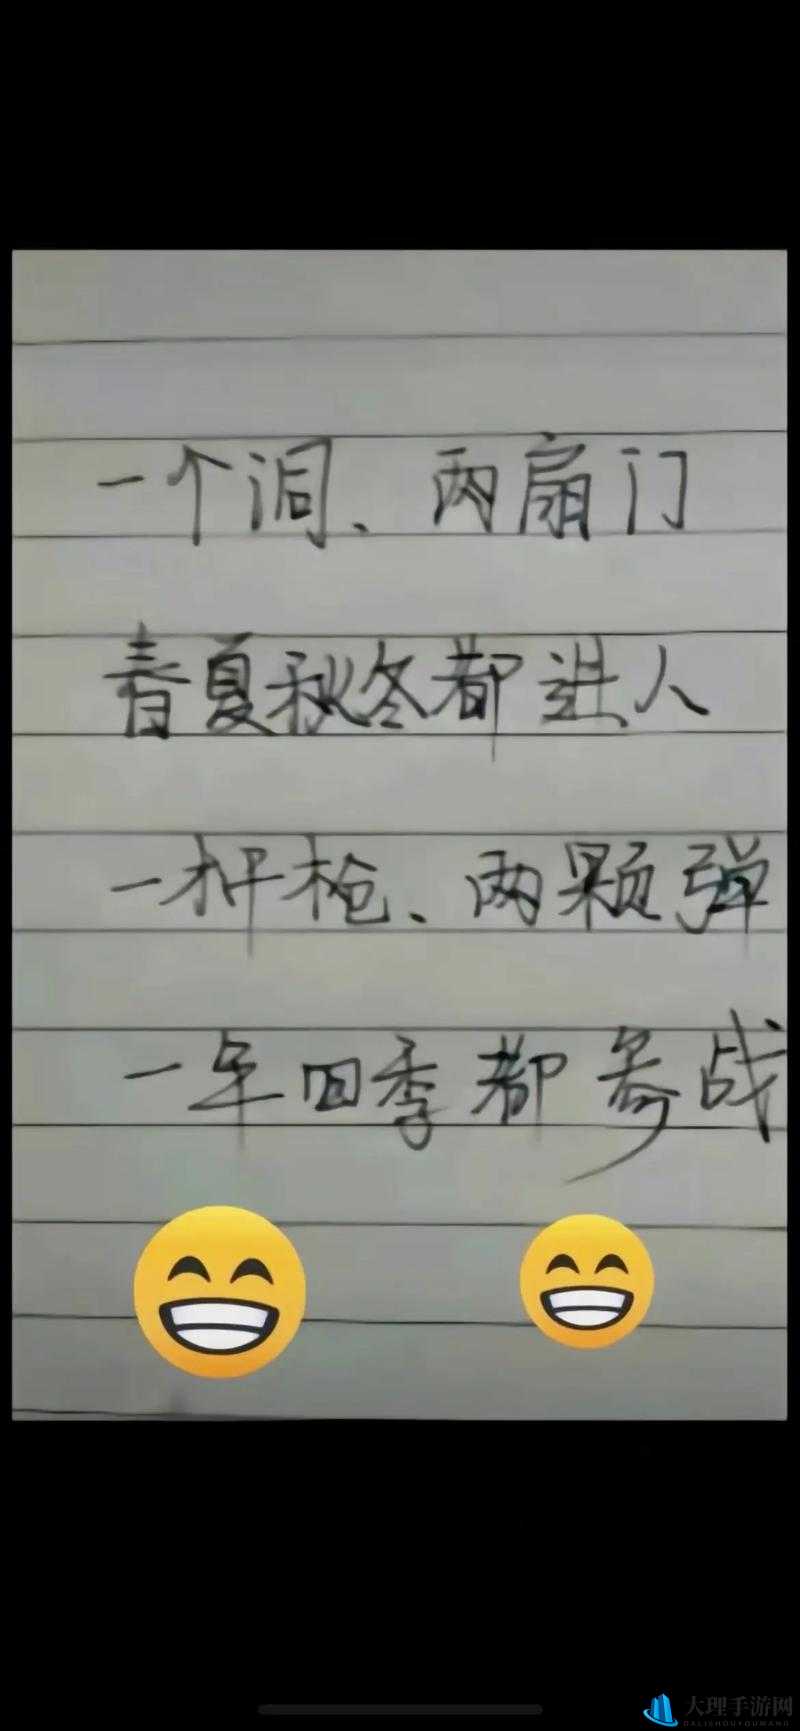 一个洞、两扇门
春夏秋冬都进人
一杆枪、两颗弹
一年四季都参战
大理手游网
DALISHOUYOUWANG